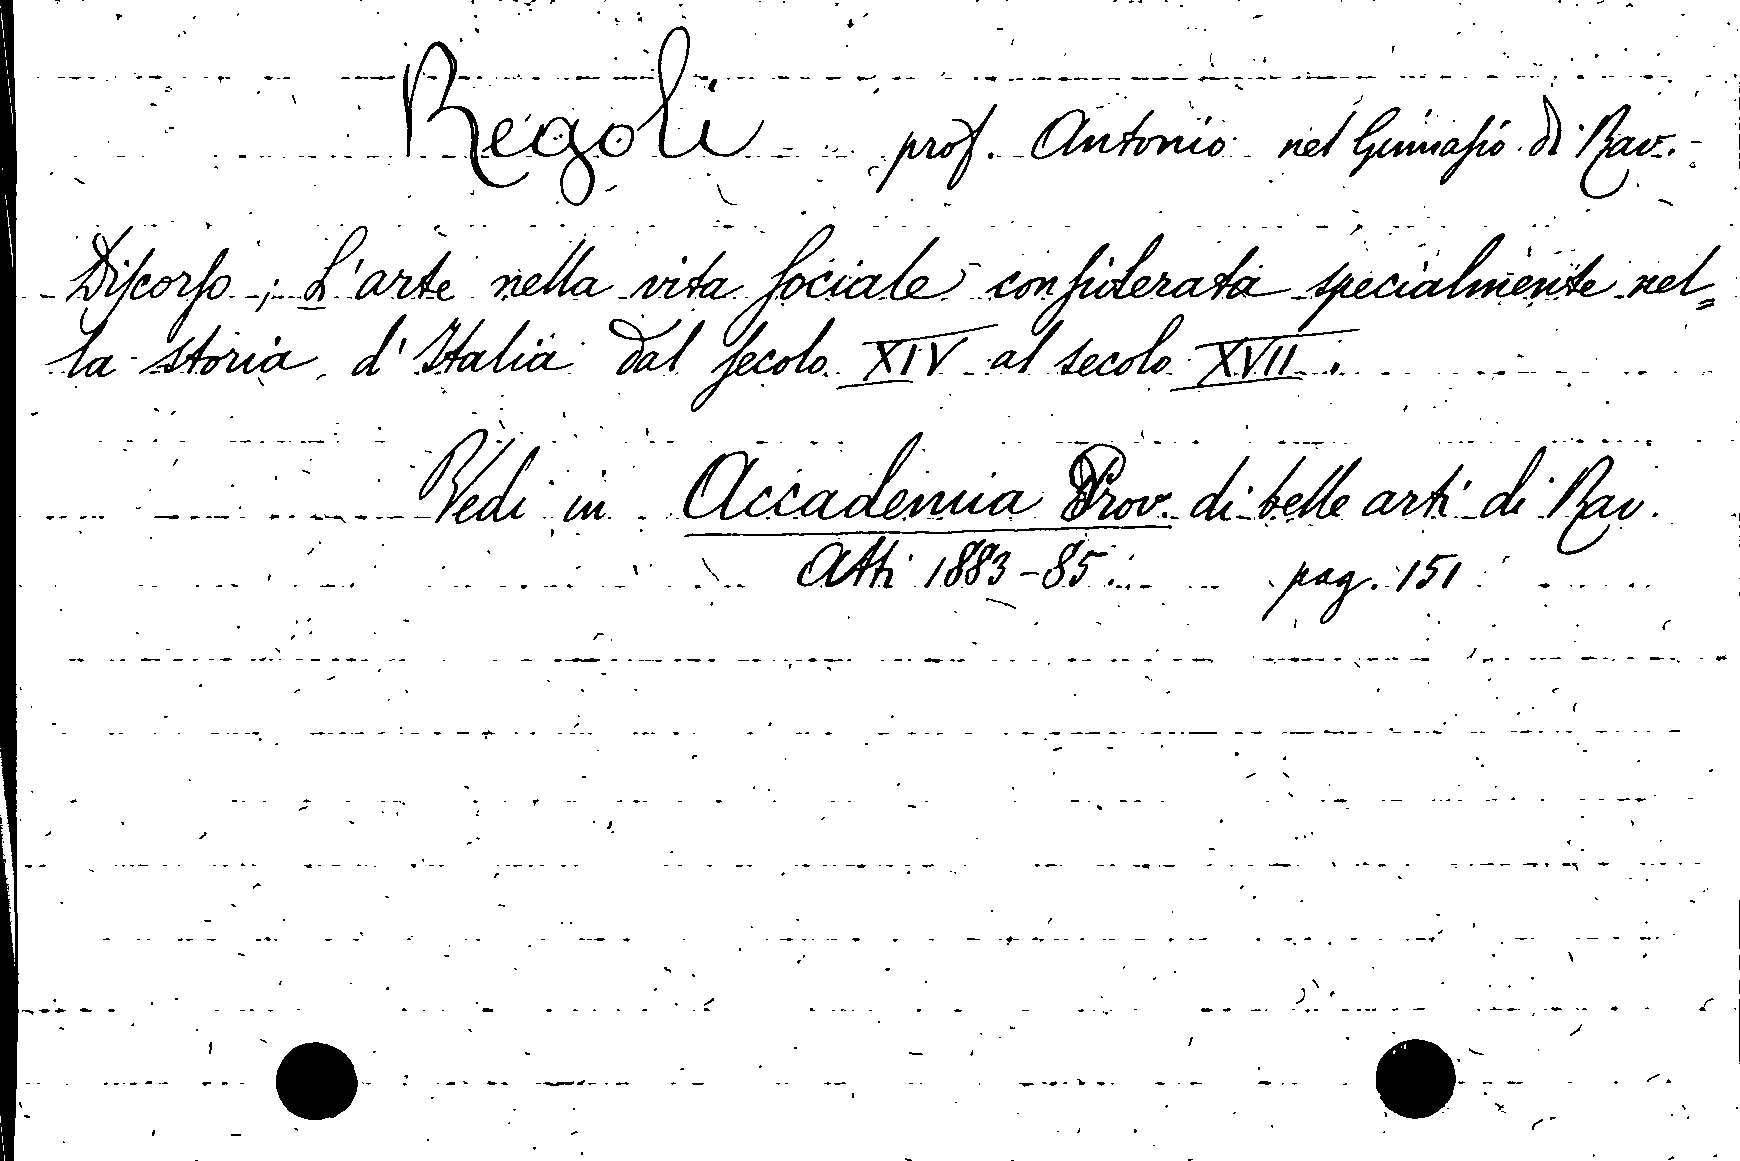 Regoli prof. Antonio nel Ginnasio di Rav.
Discorso; L'arte nella vita sociale considerata specialmente nel=
la storia d'Italia dal secolo XIV al secolo XVII.
Vedi in Accademia Prov. di belle arti di Rav.
Atti 1883-85. pag. 151